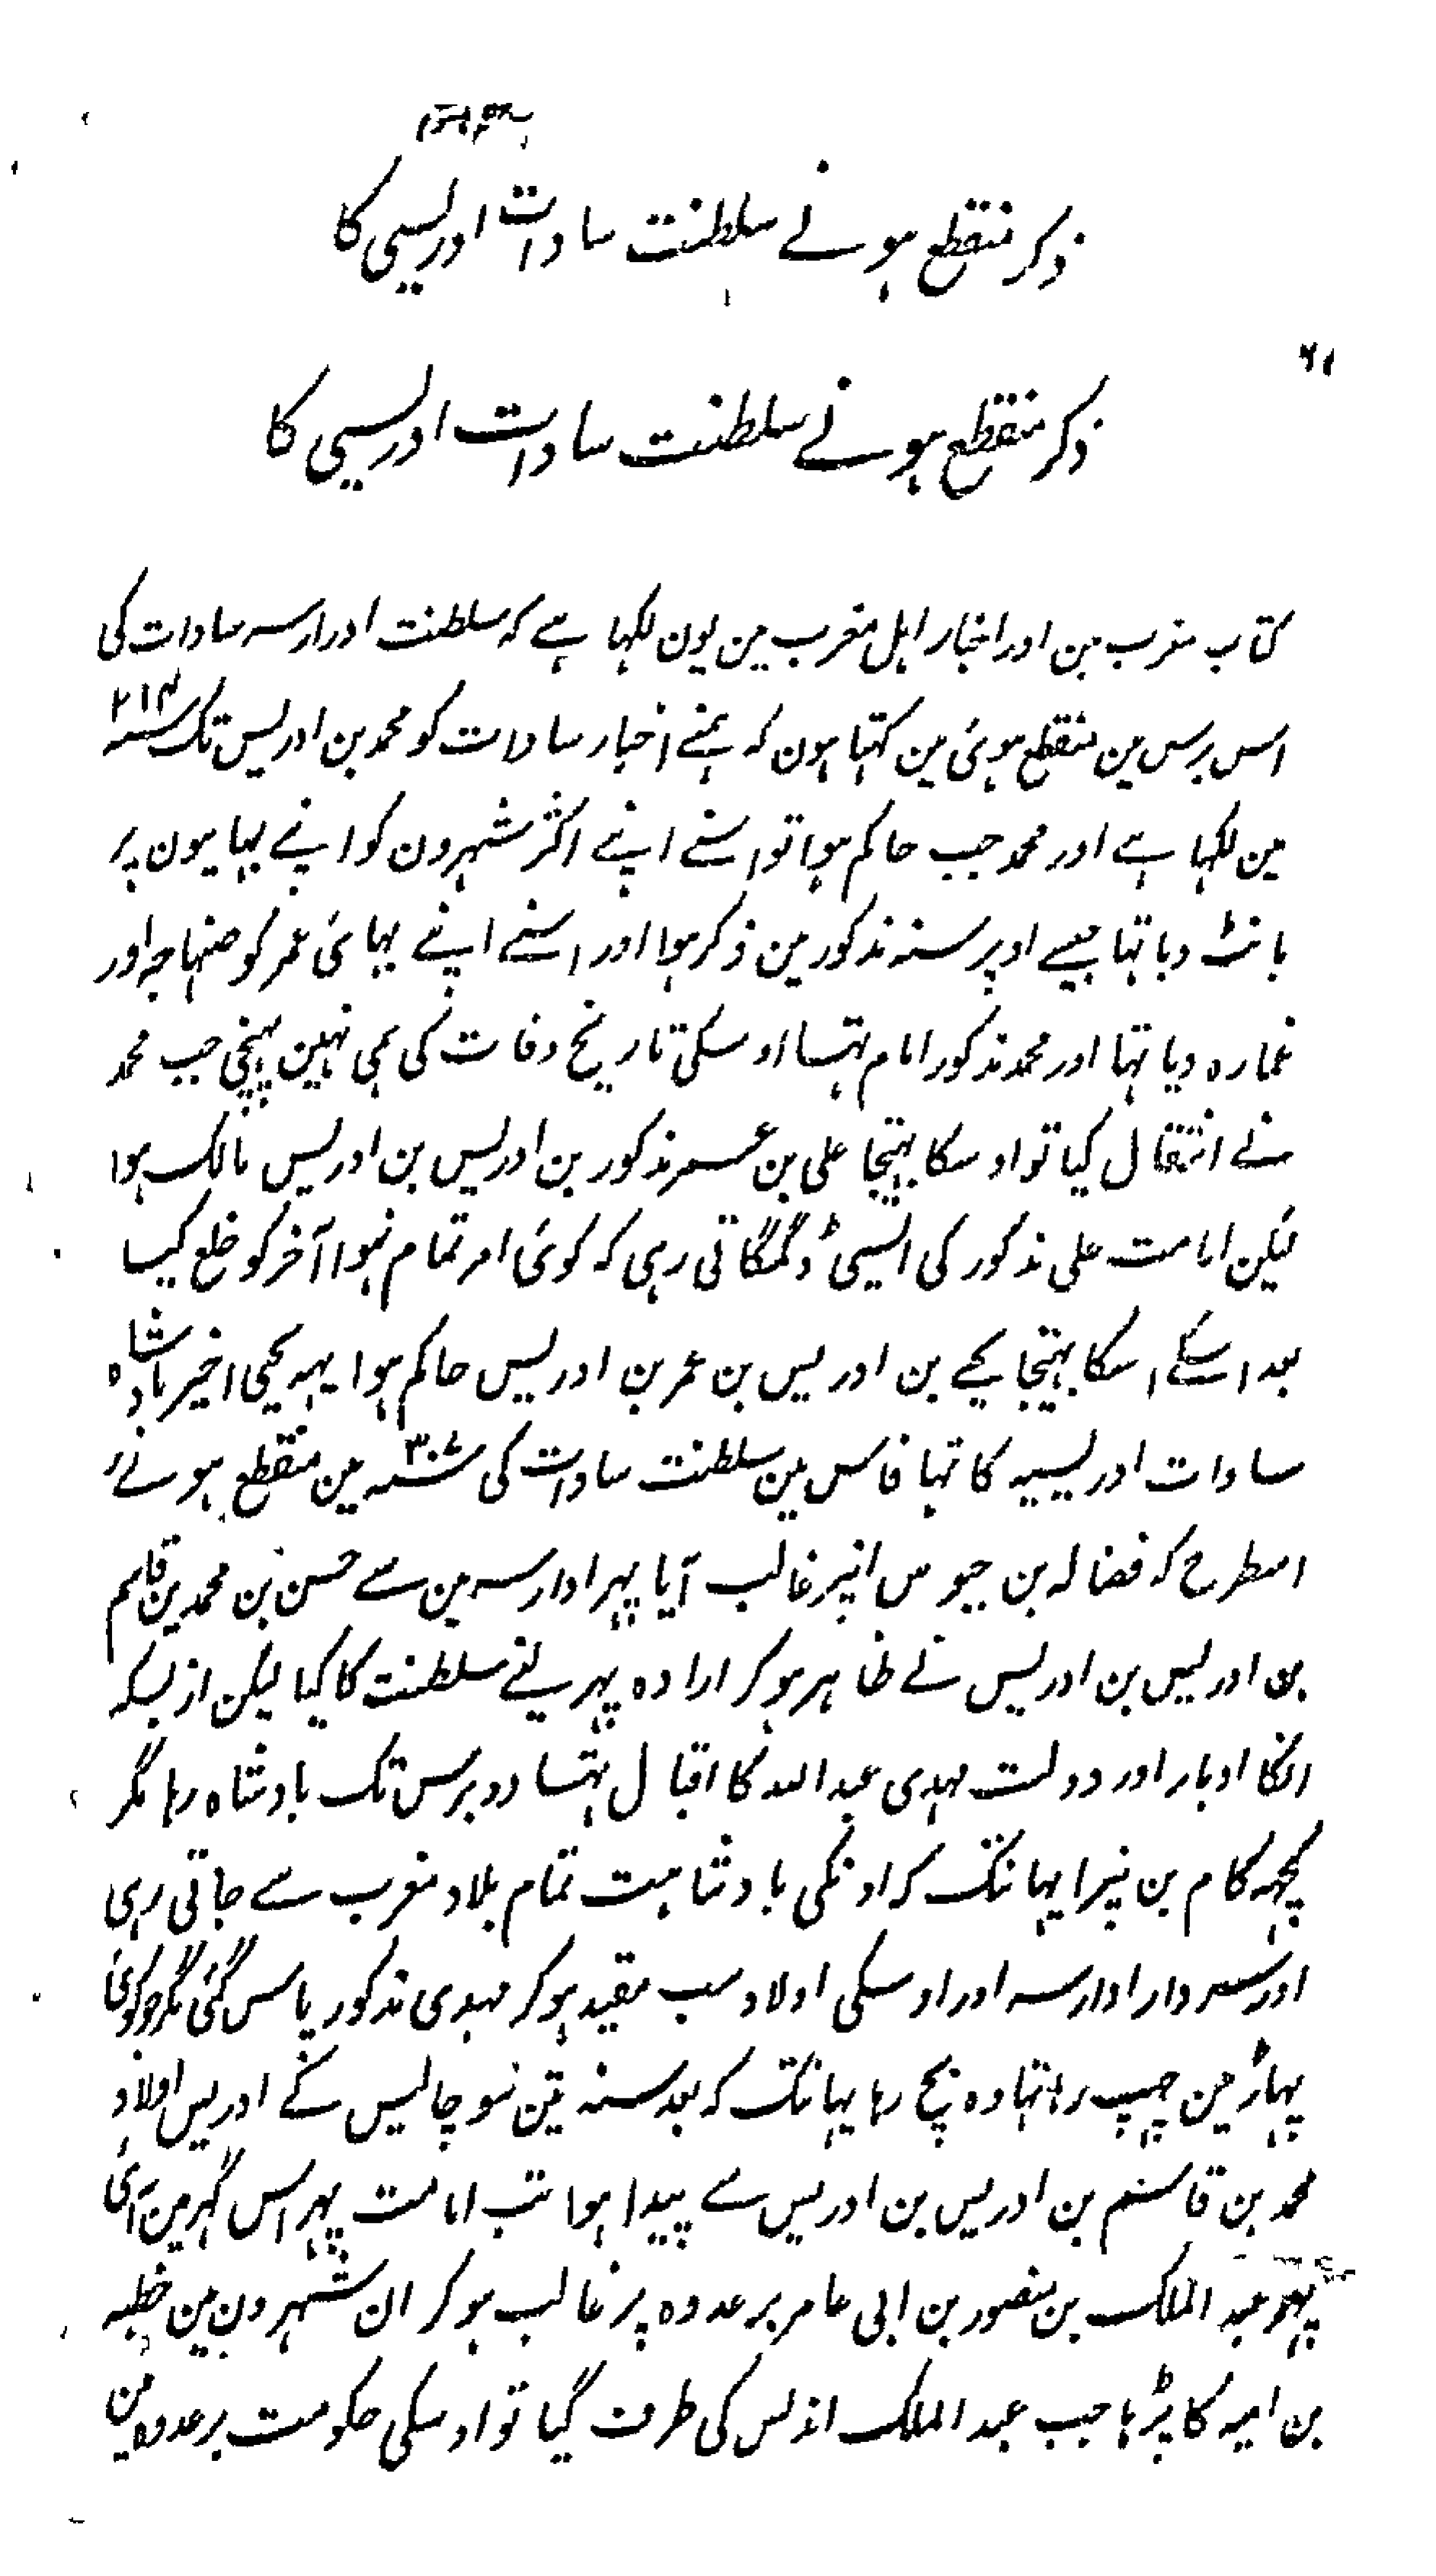 ذکر منقطع ہونے سلطنت سادات ادریسی کا
۲۱
ذکر منقطع ہونے سلطنت سادات ادریسی کا
کتاب مغرب مین اور اخبار اہل مغرب مین یون لکہا ہے کہ سلطنت ادرارسہ سادات کی
اس برس مین منقطع ہوئی مین کہتا ہون کہ ہمنے اخبار سادات کو محمد بن ادریس تک سنہ ۲۱۴
مین لکہا ہے اور محمد جب حاکم ہوا تو اسنے اپنے اکثر شہرون کو اپنے بہاییون پر
بانٹ دیا تہا جیسے اوپر سنہ مذکور مین ذکر ہوا اور اسنے اپنے بہائی عمر کو صنہاجہ اور
غمارہ دیا تہا اور محمد مذکور امام تہا اوسکی تاریخ وفات کی ہمی نہین پہنچی جب محمد
نے انتقال کیا تو اوسکا بہتیجا علی بن عمر مذکور بن ادریس بن ادریس مالک ہوا
لیکن امامت علی مذکور کی ایسی ڈگمگاتی رہی کہ کوئی امر تمام نہوا آخر کو خلع کیا
بعد اسکے اسکا بہتیجا یحیے بن ادریس بن عمر بن ادریس حاکم ہوا یہہ یحیی اخیر بادشاہ
سادات ادریسیہ کا تہا فاس مین سلطنت سادات کی سنہ ۳۰۷ مین منقطع ہونے
اسطرح کہ فضالہ بن حبوس انپر غالب آیا پہر ادارسہ مین سے حسن بن محمد بن قاسم
بن ادریس بن ادریس نے ظاہر ہوکر ارادہ پہر لینے سلطنت کا کیا لیکن ازبسکہ
انکا ادبار اور دولت مہدی عبد اللہ کا اقبال تہا دو برس تک بادشاہ رہا مگر
کچہہ کام بن نپڑا یہانتک کہ اونکی بادشاہت تمام بلاد مغرب سے جاتی رہی
اور سردار ادارسہ اور اوسکی اولاد سب مقید ہوکر مہدی مذکور پاس گئی مگر جو کوئی
پہاڑ مین چہپ رہا تہا وہ بچ رہا یہانتک کہ بعد سنہ تین سو چالیس کے ادریس اولاد
محمد بن قاسم بن ادریس بن ادریس سے پیدا ہوا تب امامت پہر اس گہر مین آئی
پہر عبد الملک بن منصور بن ابی عامر بر عدوہ پر غالب ہوکر ان شہرون مین خطبہ
بن امیہ کا پڑہا جب عبد الملک اندلس کی طرف گیا تو اوسکی حکومت بر عدوہ مین